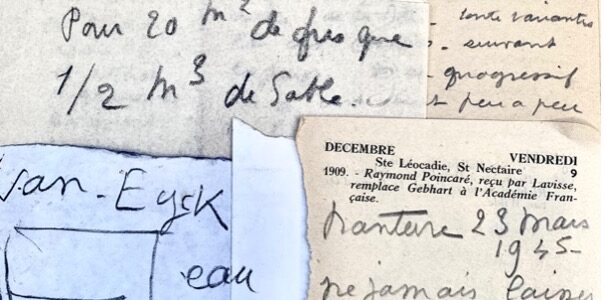 Pour 20 m² de fresque
1/2 m³ de Sable.
toute variantes
suivant
progressif
peu a peu
DECEMBRE VENDREDI
Ste Léocadie, St Nectaire 9
1909. - Raymond Poincaré, reçu par Lavisse,
remplace Gebhart à l'Académie Fran-
çaise.
Nanterre 23 Mars
1945
ne jamais
Van-Eyck
eau